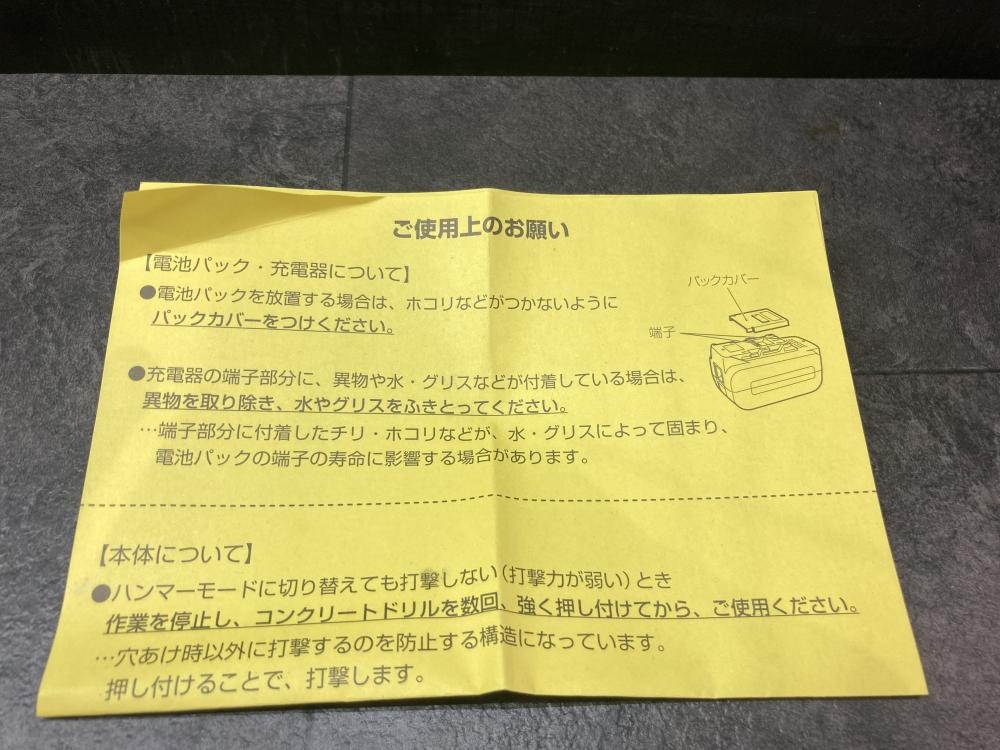 ご使用上のお願い
【電池パック・充電器について】
●電池パックを放置する場合は、ホコリなどがつかないように
パックカバーをつけください。
パックカバー
端子
●充電器の端子部分に、異物や水・グリスなどが付着している場合は、
異物を取り除き、水やグリスをふきとってください。
…端子部分に付着したチリ・ホコリなどが、水・グリスによって固まり、
電池パックの端子の寿命に影響する場合があります。
【本体について】
●ハンマーモードに切り替えても打撃しない（打撃力が弱い）とき
作業を停止し、コンクリートドリルを数回、強く押し付けてから、ご使用ください。
…穴あけ時以外に打撃するのを防止する構造になっています。
押し付けることで、打撃します。